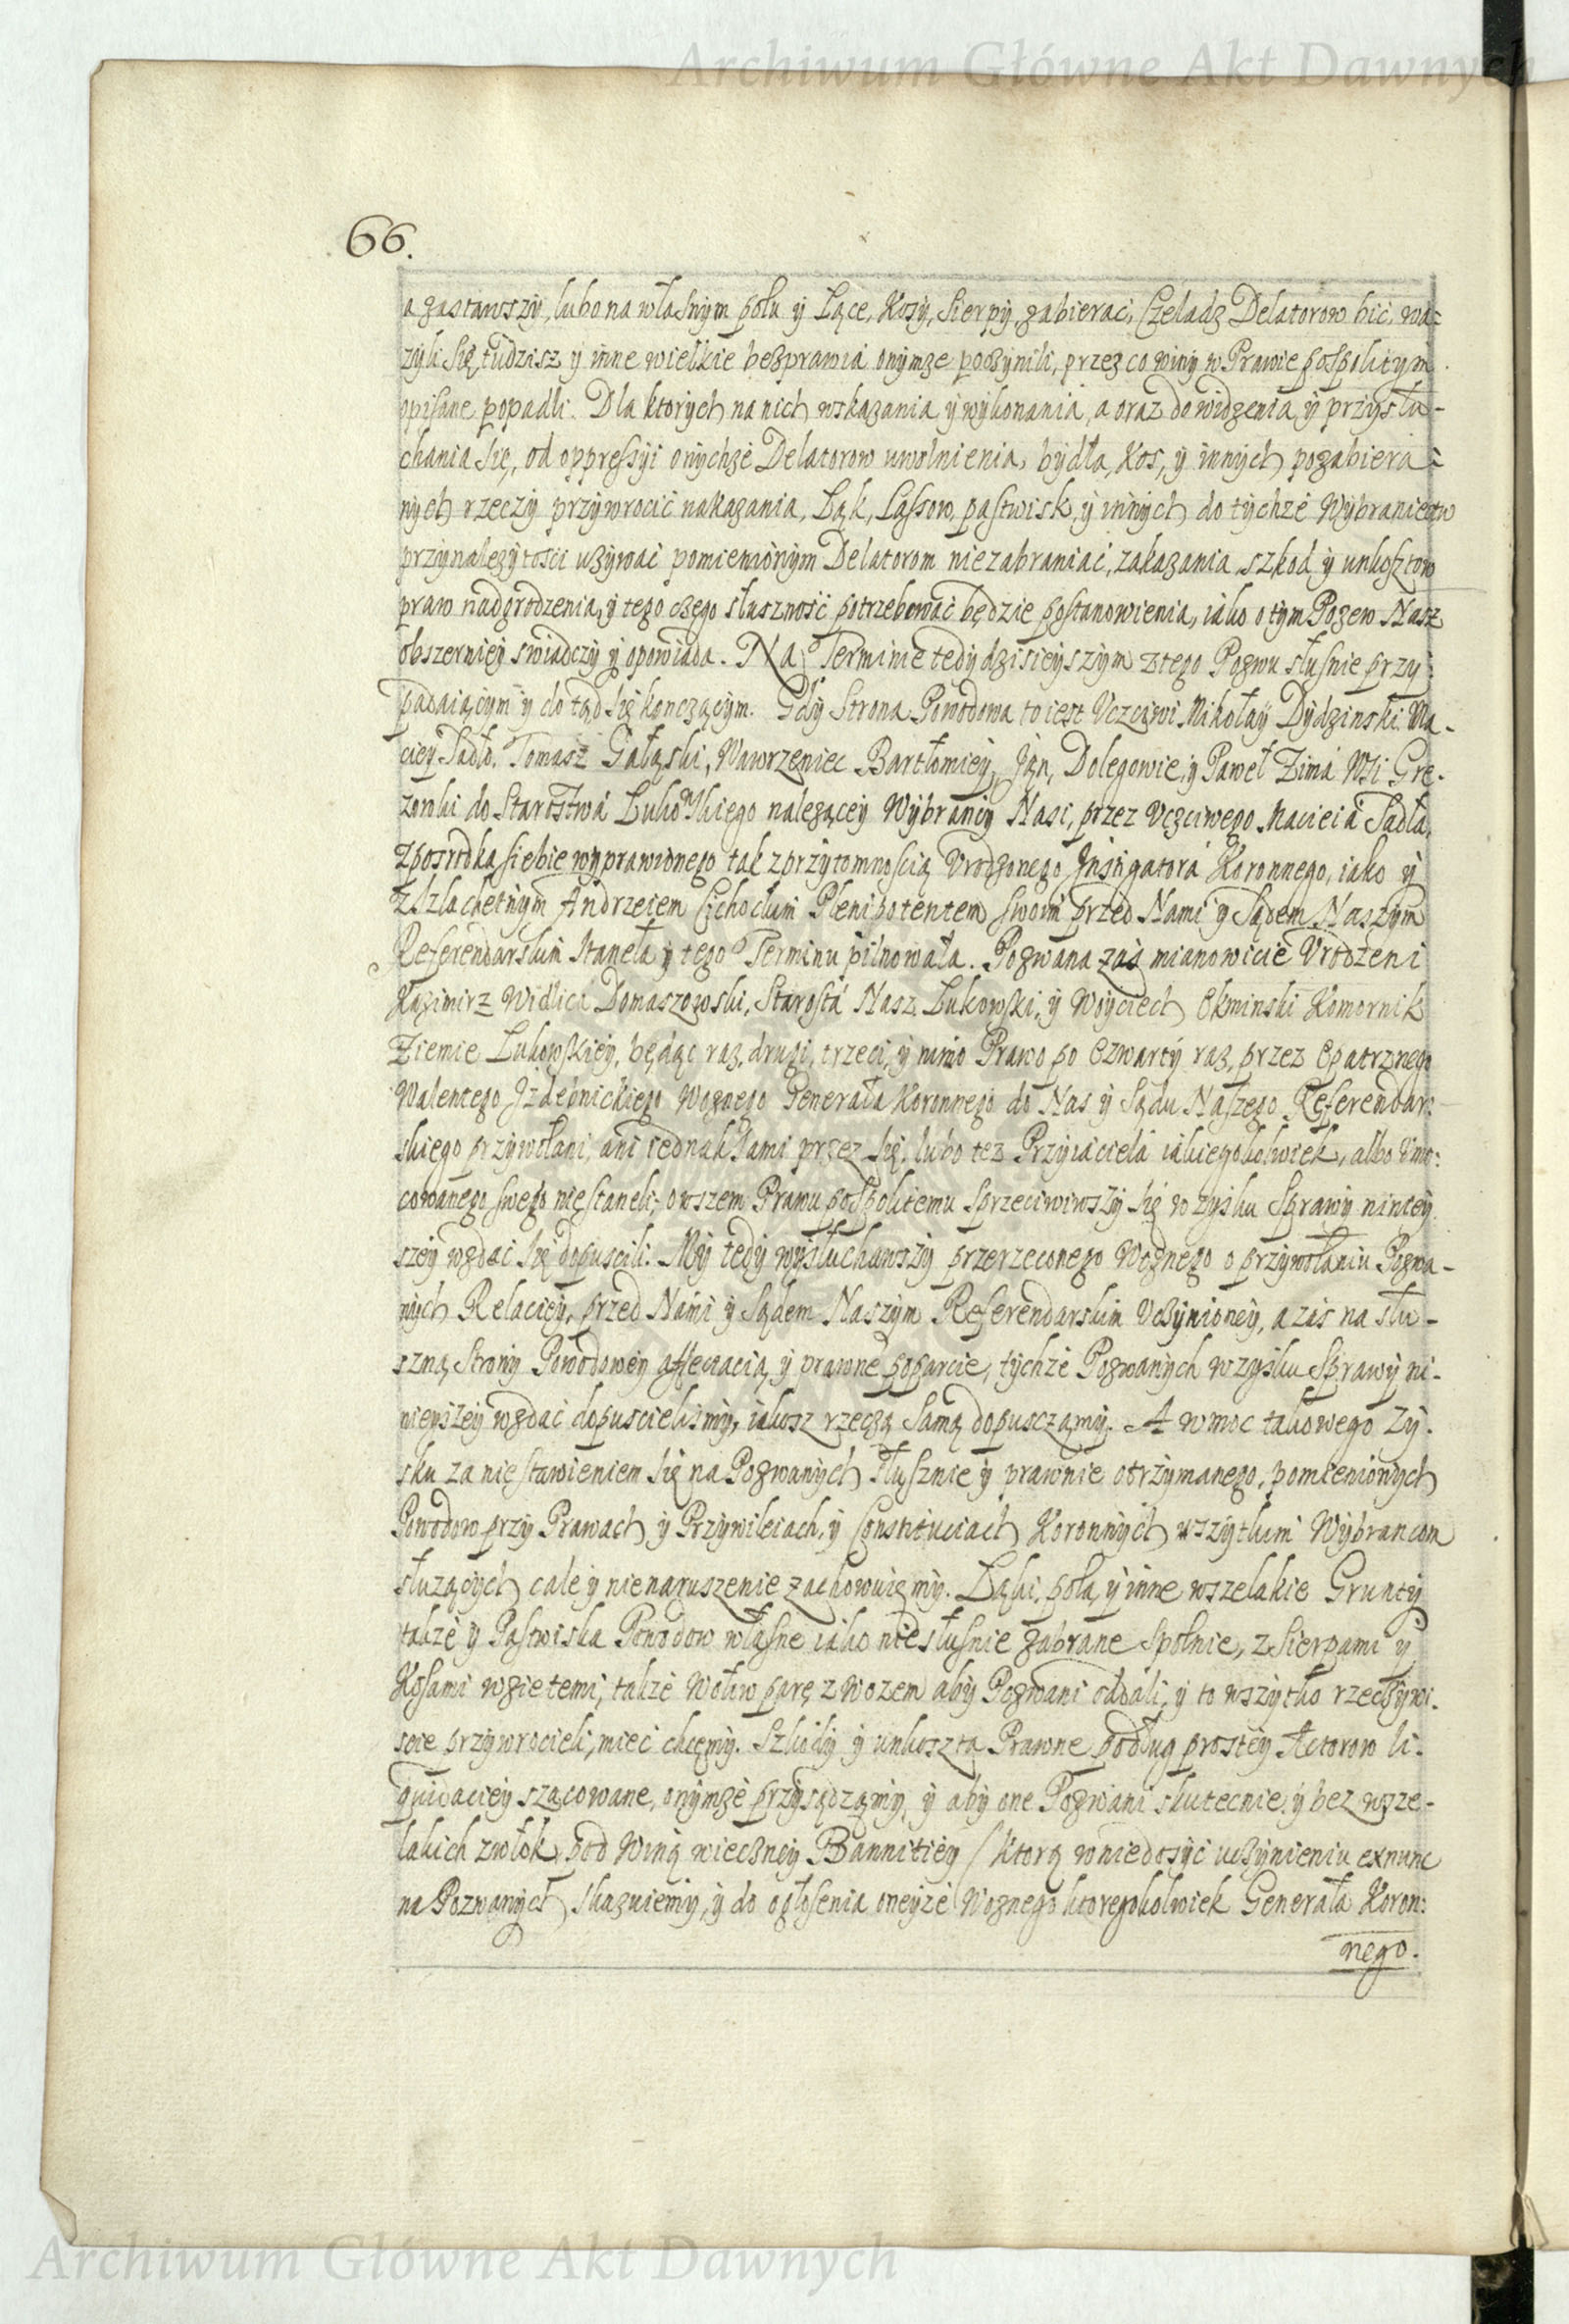 Archiwum Główne Akt Dawnych
66.
a zastawszy, lubo na własnym polu y Lące, Kosy, Sierpy, zabierac, Czeladz Delatorow bić, wa=
zyli się, tudzisz y inne wielkie bezprawia onymze poczynili, przez co winy w Prawie pospolitym
opisane popadli. Dla ktorych na nich wskazania y wykonania, a oraz do widzenia y przysłu-
chania się, od oppressyi onychze Delatorow uwolnienia, bydła, Kos, y innych pozabiera=
nych rzeczy przywrocić nakazania, Ląk, Lassow, pastwisk, y innych do tychże Wybraniectw
przynalezytosci uzywać pomienionym Delatorom niezabraniać, zakazania, szkod y unkosztow
praw nadgrodzenia, y tego czego słuszność potrzebować będzie postanowienia, iako o tym Pozew Nasz
obszerniey swiadczy y opowiada. Na Terminie tedy dzisieyszym z tego Pozwu słusnie przy
padaiącym y do tąd się kączącym. Gdy Strona Powodowa to iest Vczciwi Mikołay Dydzinski, Ma-
ciey Sadło, Tomasz Gałąski, Wawrzeniec Bartłomiey, Jan, Dolegowie, y Paweł Zima Wsi Grę-
zowki do Starostwa Lukowskiego nalezącey Wybrancy Nasi, przez Vczciwego Macieia Sadła,
z posrodka siebie wyprawionego tak z przytomnością Vrodzonego Instigatora Koronnego, iako y
z Szlachetnym Andrzeiem Cichockim Plenipotentem swoim przed Nami y Sądem Naszym
Referendarskim stanęła y tego Terminu pilnowała. Pozwana zaś mianowicie Vrodzeni
Kazimirz Widlica Domaszowski, Starosta Nasz Lukowski, y Woyciech Ekminski Komornik
Ziemie Lukowskiey, będąc raz, drugi, trzeci, y mimo Prawo po czwarty raz, przez Opatrznego
Walentego Jzdebnickiego Woznego Generała Koronnego do Nas y Sądu Naszego Referendar:
skiego przywołani, ani iednak sami przez się, lubo tez Przyiaciela iakiegokolwiek, albo Vmo:
cowanego swego nie staneli, owszem Prawu pospolitemu sprzeciwiwszy się w zysku Sprawy niniey
szey wzdać się dopuscili. My tedy wysłuchawszy przerzeconego Woznego o przywołaniu Pozwa-
nych Relaciey, przed Nami y Sądem Naszym Referendarskim Vczynioney, a zas na słu-
szną Strony Powodowey affectacią y prawne poparcie, tychże Pozwanych w zysku Sprawy ni-
nieyszey wzdać dopuscielismy, iakosz rzeczą samą dopusczamy. A w moc takowego Zy-
sku za nie stawieniem się na Pozwanych słusznie y prawnie otrzymanego, pomienionych
Powodow przy Prawach y Przywileiach, y Constituciach Koronnych wszytkim Wybrancom
słuzących cale y nienaruszenie zachowuiemy. Ląki, pola, y inne wszelakie Grunty
także y Pastwiska Powodow własne iako niesłusnie zabrane spolnie, z Sierpami y
Kosami wzietemi, także Wołow parę z wozem aby Pozwani oddali, y to wszytko rzeczywi-
scie przywrocieli, mieć chcemy. Szkody y unkoszta Prawne podług prostey Actorow li-
quidaciey szącowane, onymże przysądzamy, y aby one Pozwani skutecnie, y bez wsze-
lakich zwłok, pod Winą wieczney Bannitiey (ktorą w niedosyć uczynieniu exnunc
na Pozwanych skazuiemy, y do ogłosenia oneyże Woznego ktoregokolwiek Generała Koron:
nego.
Archiwum Główne Akt Dawnych